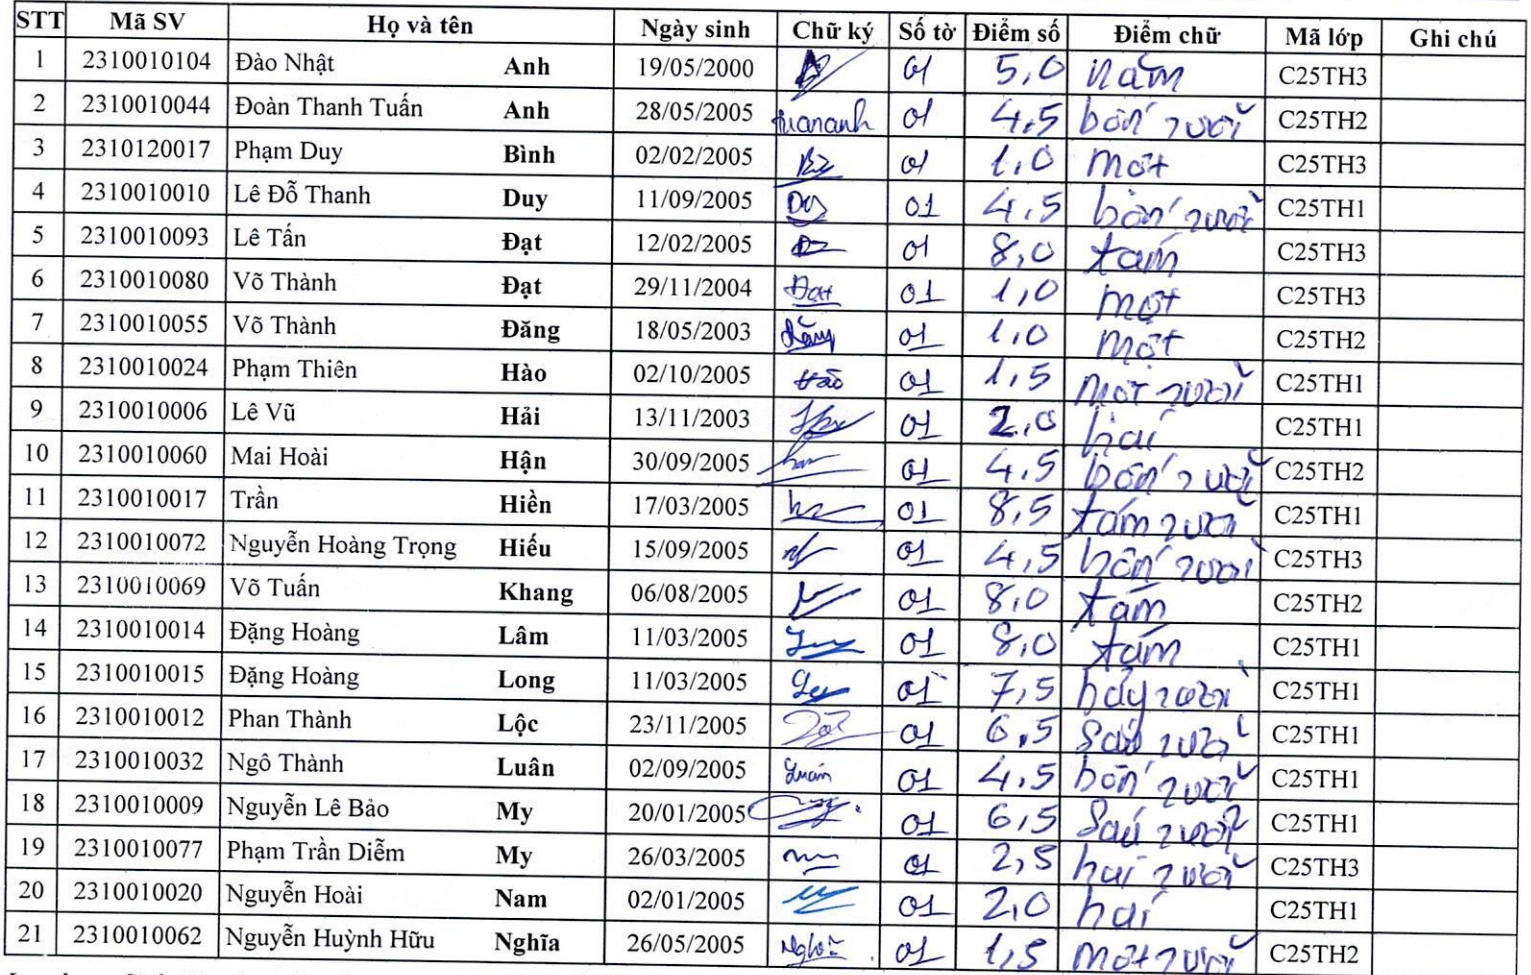 STT Mã SV Họ và tên Ngày sinh Chữ ký Số tờ Điểm số Điểm chữ Mã lớp Ghi chú
1 2310010104 Đào Nhật Anh 19/05/2000 01 5,0 năm C25TH3
2 2310010044 Đoàn Thanh Tuấn Anh 28/05/2005 tuananh 01 4,5 bốn rưỡi C25TH2
3 2310120017 Phạm Duy Bình 02/02/2005 01 1,0 một C25TH3
4 2310010010 Lê Đỗ Thanh Duy 11/09/2005 Duy 01 4,5 bốn rưỡi C25TH1
5 2310010093 Lê Tấn Đạt 12/02/2005 01 8,0 tám C25TH3
6 2310010080 Võ Thành Đạt 29/11/2004 Đạt 01 1,0 một C25TH3
7 2310010055 Võ Thành Đăng 18/05/2003 đăng 01 1,0 một C25TH2
8 2310010024 Phạm Thiên Hào 02/10/2005 Hào 01 1,5 một rưỡi C25TH1
9 2310010006 Lê Vũ Hải 13/11/2003 01 2,0 hai C25TH1
10 2310010060 Mai Hoài Hận 30/09/2005 01 4,5 bốn rưỡi C25TH2
11 2310010017 Trần Hiền 17/03/2005 01 8,5 tám rưỡi C25TH1
12 2310010072 Nguyễn Hoàng Trọng Hiếu 15/09/2005 01 4,5 bốn rưỡi C25TH3
13 2310010069 Võ Tuấn Khang 06/08/2005 01 8,0 tám C25TH2
14 2310010014 Đặng Hoàng Lâm 11/03/2005 01 8,0 tám C25TH1
15 2310010015 Đặng Hoàng Long 11/03/2005 01 7,5 bảy rưỡi C25TH1
16 2310010012 Phan Thành Lộc 23/11/2005 01 6,5 Sáu rưỡi C25TH1
17 2310010032 Ngô Thành Luân 02/09/2005 Luân 01 4,5 bốn rưỡi C25TH1
18 2310010009 Nguyễn Lê Bảo My 20/01/2005 01 6,5 Sáu rưỡi C25TH1
19 2310010077 Phạm Trần Diễm My 26/03/2005 01 2,5 hai rưỡi C25TH3
20 2310010020 Nguyễn Hoài Nam 02/01/2005 01 2,0 hai C25TH1
21 2310010062 Nguyễn Huỳnh Hữu Nghĩa 26/05/2005 Nghĩa 01 1,5 một rưỡi C25TH2